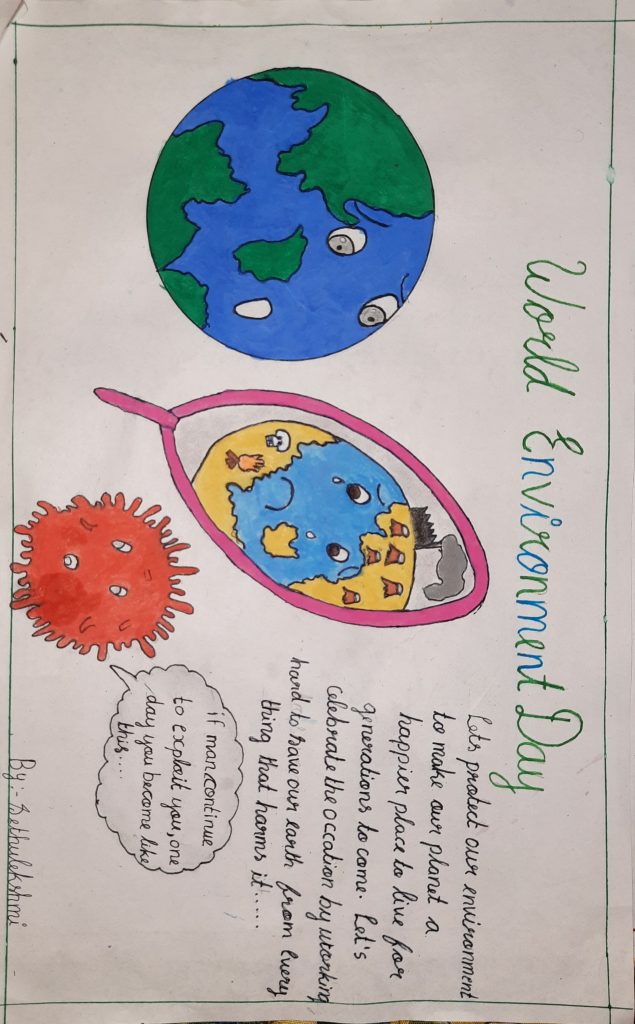 World Environment Day
Lets protect our environment
to make our planet a
happier place to live for
generations to come. Let's
celebrate the occation by working
hard to save our earth from every
thing that harms it.....
if man continue
to exploit you, one
day you become like
this....
By:- Sethulekshmi